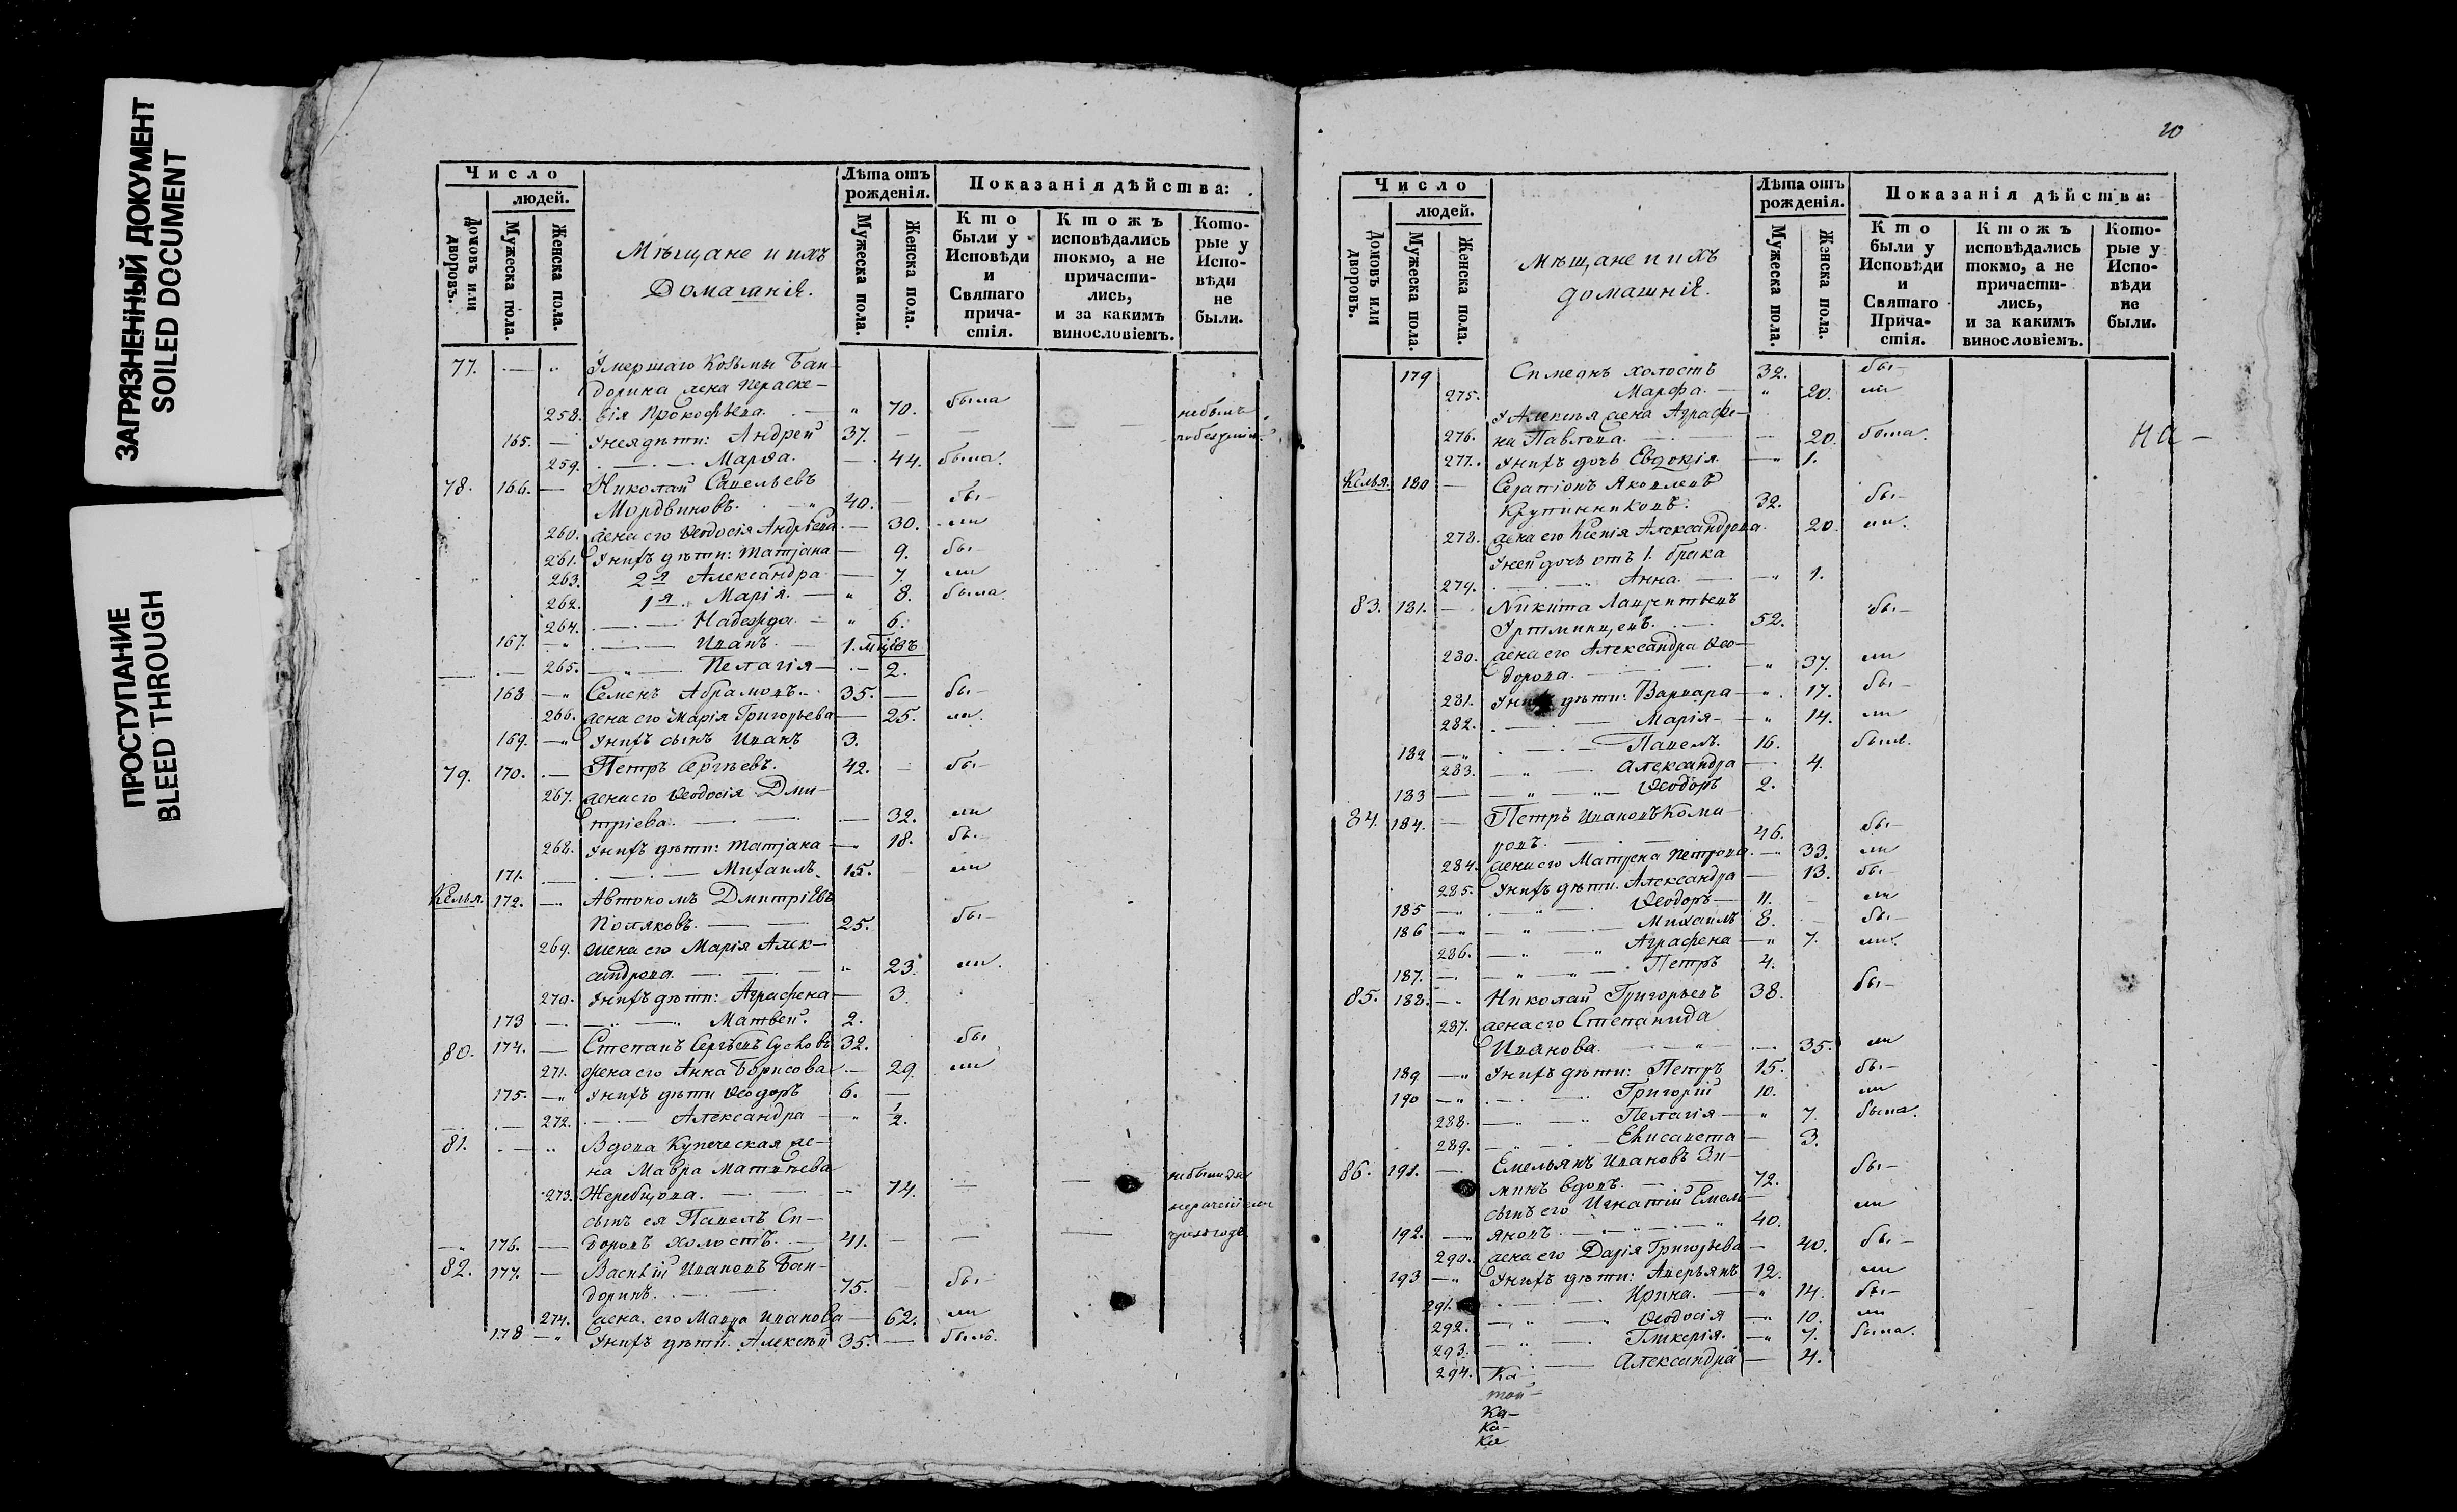 ЗАГРЯЗНЕННЫЙ ДОКУМЕНТ
SOILED DOCUMENT
ПРОСТУПАНИЕ
BLEED THROUGH
Число
людей.
Домовъ или дворовъ.
Мужеска пола.
Женска пола.
Мѣщане и ихъ
Домашнія.
Лѣта отъ рожденія.
Мужеска пола.
Женска пола.
Показанія дѣйства:
Кто были у Исповѣди и Святаго прича-стія.
Ктожъ исповѣдались токмо, а не причасти-лись, и за какимъ винословіемъ.
Кото-рые у Испо-вѣди не были.
77. — „ Умершаго Козьмы Бан-
дорина жена Параске-
258. вія Прокофьева. — „ 70. была
165. — У нея дѣти: Андрей 37. —
259. — Марѳа. — 44. была.
78. 166. — Николай Савельевъ
Мордвиновъ. — „ 40. — бы-
260. жена его Ѳеодосія Андрѣева — 30. ли
261. У нихъ дѣти: Татіана — 9. бы-
263. 2я Александра — 7. ли
262. 1я Марія. — „ 8. была.
264. — Надежда — „ 6.
167. — „ — Иванъ — 1. мѣсяцъ
265. — „ — Пелагія — 2.
168 — „ Семенъ Абрамовъ. 35. — бы-
266. жена его Марія Григорьева — 25. ли.
169. — „ У нихъ сынъ Иванъ 3.
79. 170. — Петръ Сергѣевъ. 42. — бы-
267. жена его Ѳеодосія Дми-
тріева. — 32. ли
268. У нихъ дѣти: Татіана — 18. бы-
171. — Михаилъ 15. ли
Келья. 172. — Автономъ Дмитріевъ
Поляковъ. — 25. бы-
269. жена его Марія Алек-
сандрова. — „ 23. ли.
270. У нихъ дѣти: Аграфена — 3.
173 — „ — Матвей. 2.
80. 174. — Степанъ Сергѣевъ 32. бы
271. жена его Анна Борисова — 29. ли
175. — „ У нихъ дѣти Ѳеодоръ 6. —
272. — Александра — „ 1/2.
81. — „ Вдова Купеческая же-
на Мавра Матвѣева
273. Жеребцова. — 74. —
сынъ ея Павелъ Си-
— „ 176. — доровъ холостъ. — 41. —
82. 177. — Василій Ивановъ Бан-
доринъ. — 75. — бы-
274. жена его Мавра Иванова — 62. ли
178 — „ У нихъ дѣти: Алексѣй 35. — былъ.
20
Число
людей.
Домовъ или дворовъ.
Мужеска пола.
Женска пола.
Мѣщане и ихъ
домашнія.
Лѣта отъ рожденія.
Мужеска пола.
Женска пола.
Показанія дѣйства:
Кто были у Исповѣди и Святаго Прича-стія.
Ктожъ исповѣдались токмо, а не причасти-лись, и за какимъ винословіемъ.
Кото-рые у Испо-вѣди не были.
179 Симеонъ холостъ 32. бы-
275. Марфа. — „ 20. ли
У Алексѣя жена Аграфе-
276. на Павлова. — 20. была.
277. У нихъ дочь Евдокія. — „ 1.
Келья. 180 — Серапіонъ Яковлевъ
Крупинниковъ. 32. бы-
278. жена его Ксенія Александрова. 20. ли.
У ней дочь отъ 1. брака
279. — Анна. — „ 1.
83. 181. — Никита Лаврентьевъ
52. бы-
280. жена его Александра Ѳео-
дорова. — „ 37. ли
281. У нихъ дѣти: Варвара — „ 17. бы-
282. — Марія — „ 14. ли
182 — „ — Павелъ. 16. былъ.
283. — „ — Александра — 4.
183 — „ — Ѳеодоръ 2.
84. 184. — Петръ Ивановъ Кома-
ровъ. — 46. бы-
284. жена его Матрена Петрова. — „ 33. ли
285. У нихъ дѣти: Александра — 13. бы-
185 — „ — Ѳеодоръ — 11. ли
186 — „ — Михаилъ 8. бы-
286. — „ Аграфена — „ 7. ли.
187. — „ — Петръ 4.
85. 188. — Николай Григорьевъ 38. бы-
287. жена его Степанида
Иванова. — „ — 35. ли
189 — „ У нихъ дѣти: Петръ 15. бы-
190 — „ — Григорій 10. ли
288. — „ Пелагія — „ 7. была.
289. — „ — Елисавета — 3.
86. 191. — Емельянъ Ивановъ Зи-
минъ вдовъ. — 72. бы-
сынъ его Игнатій Емель-
192. — „ яновъ — „ 40. ли
290. жена его Дарія Григорьева — 40. бы-
193 — „ У нихъ дѣти: Аверьянъ 12. ли
291. — Ирина. — „ 14. бы-
292. — „ — Ѳеодосія — „ 10. ли
293. — „ — Гликерія. — „ 7. была.
294. Ка — Александра — 4.
Ка-
Ка-
Ка
На —